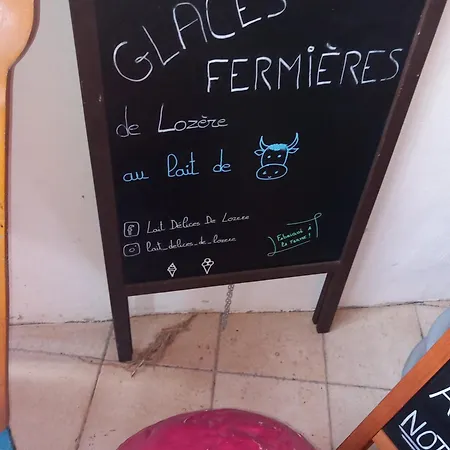 GLACES
FERMIÈRES
de Lozère
au lait de
Lait Délices De Lozere
lait_delices_de_lozere
Fabriqué à
la ferme
NOT